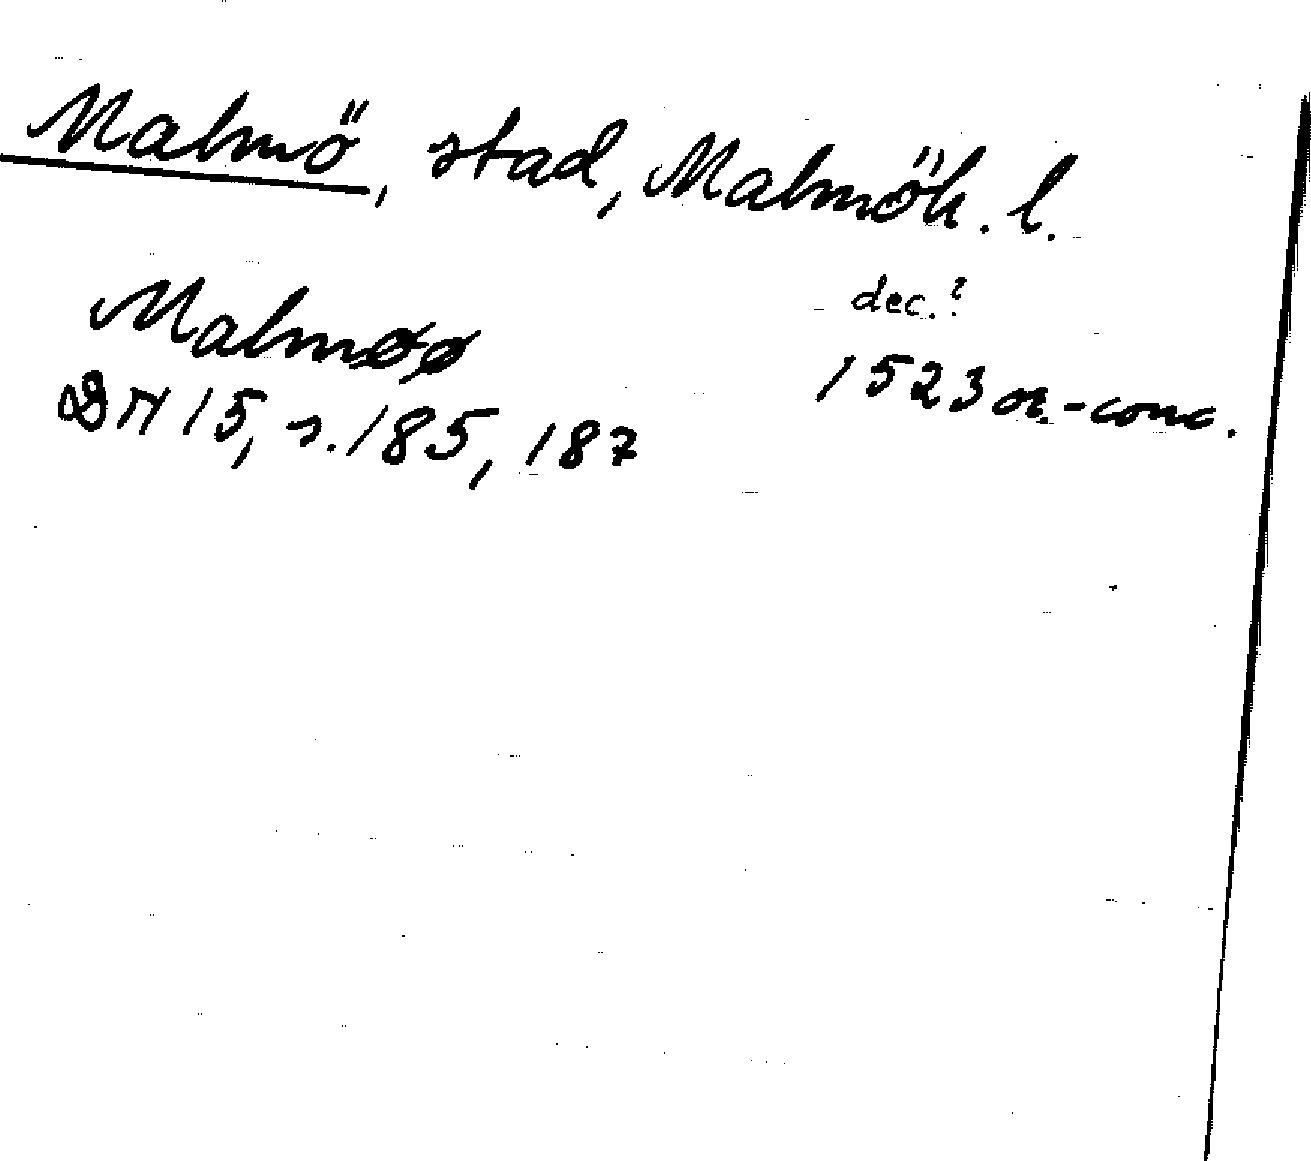 Malmö, stad, Malmöh. l.
dec.?
Malmøø 1523 or.-conc.
DN 15, s. 185, 187